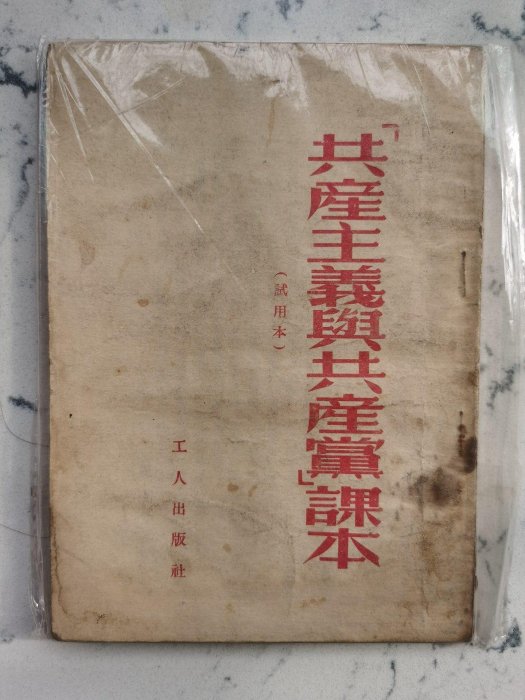 「共産主義與共産黨」課本
（試用本）
工人出版社